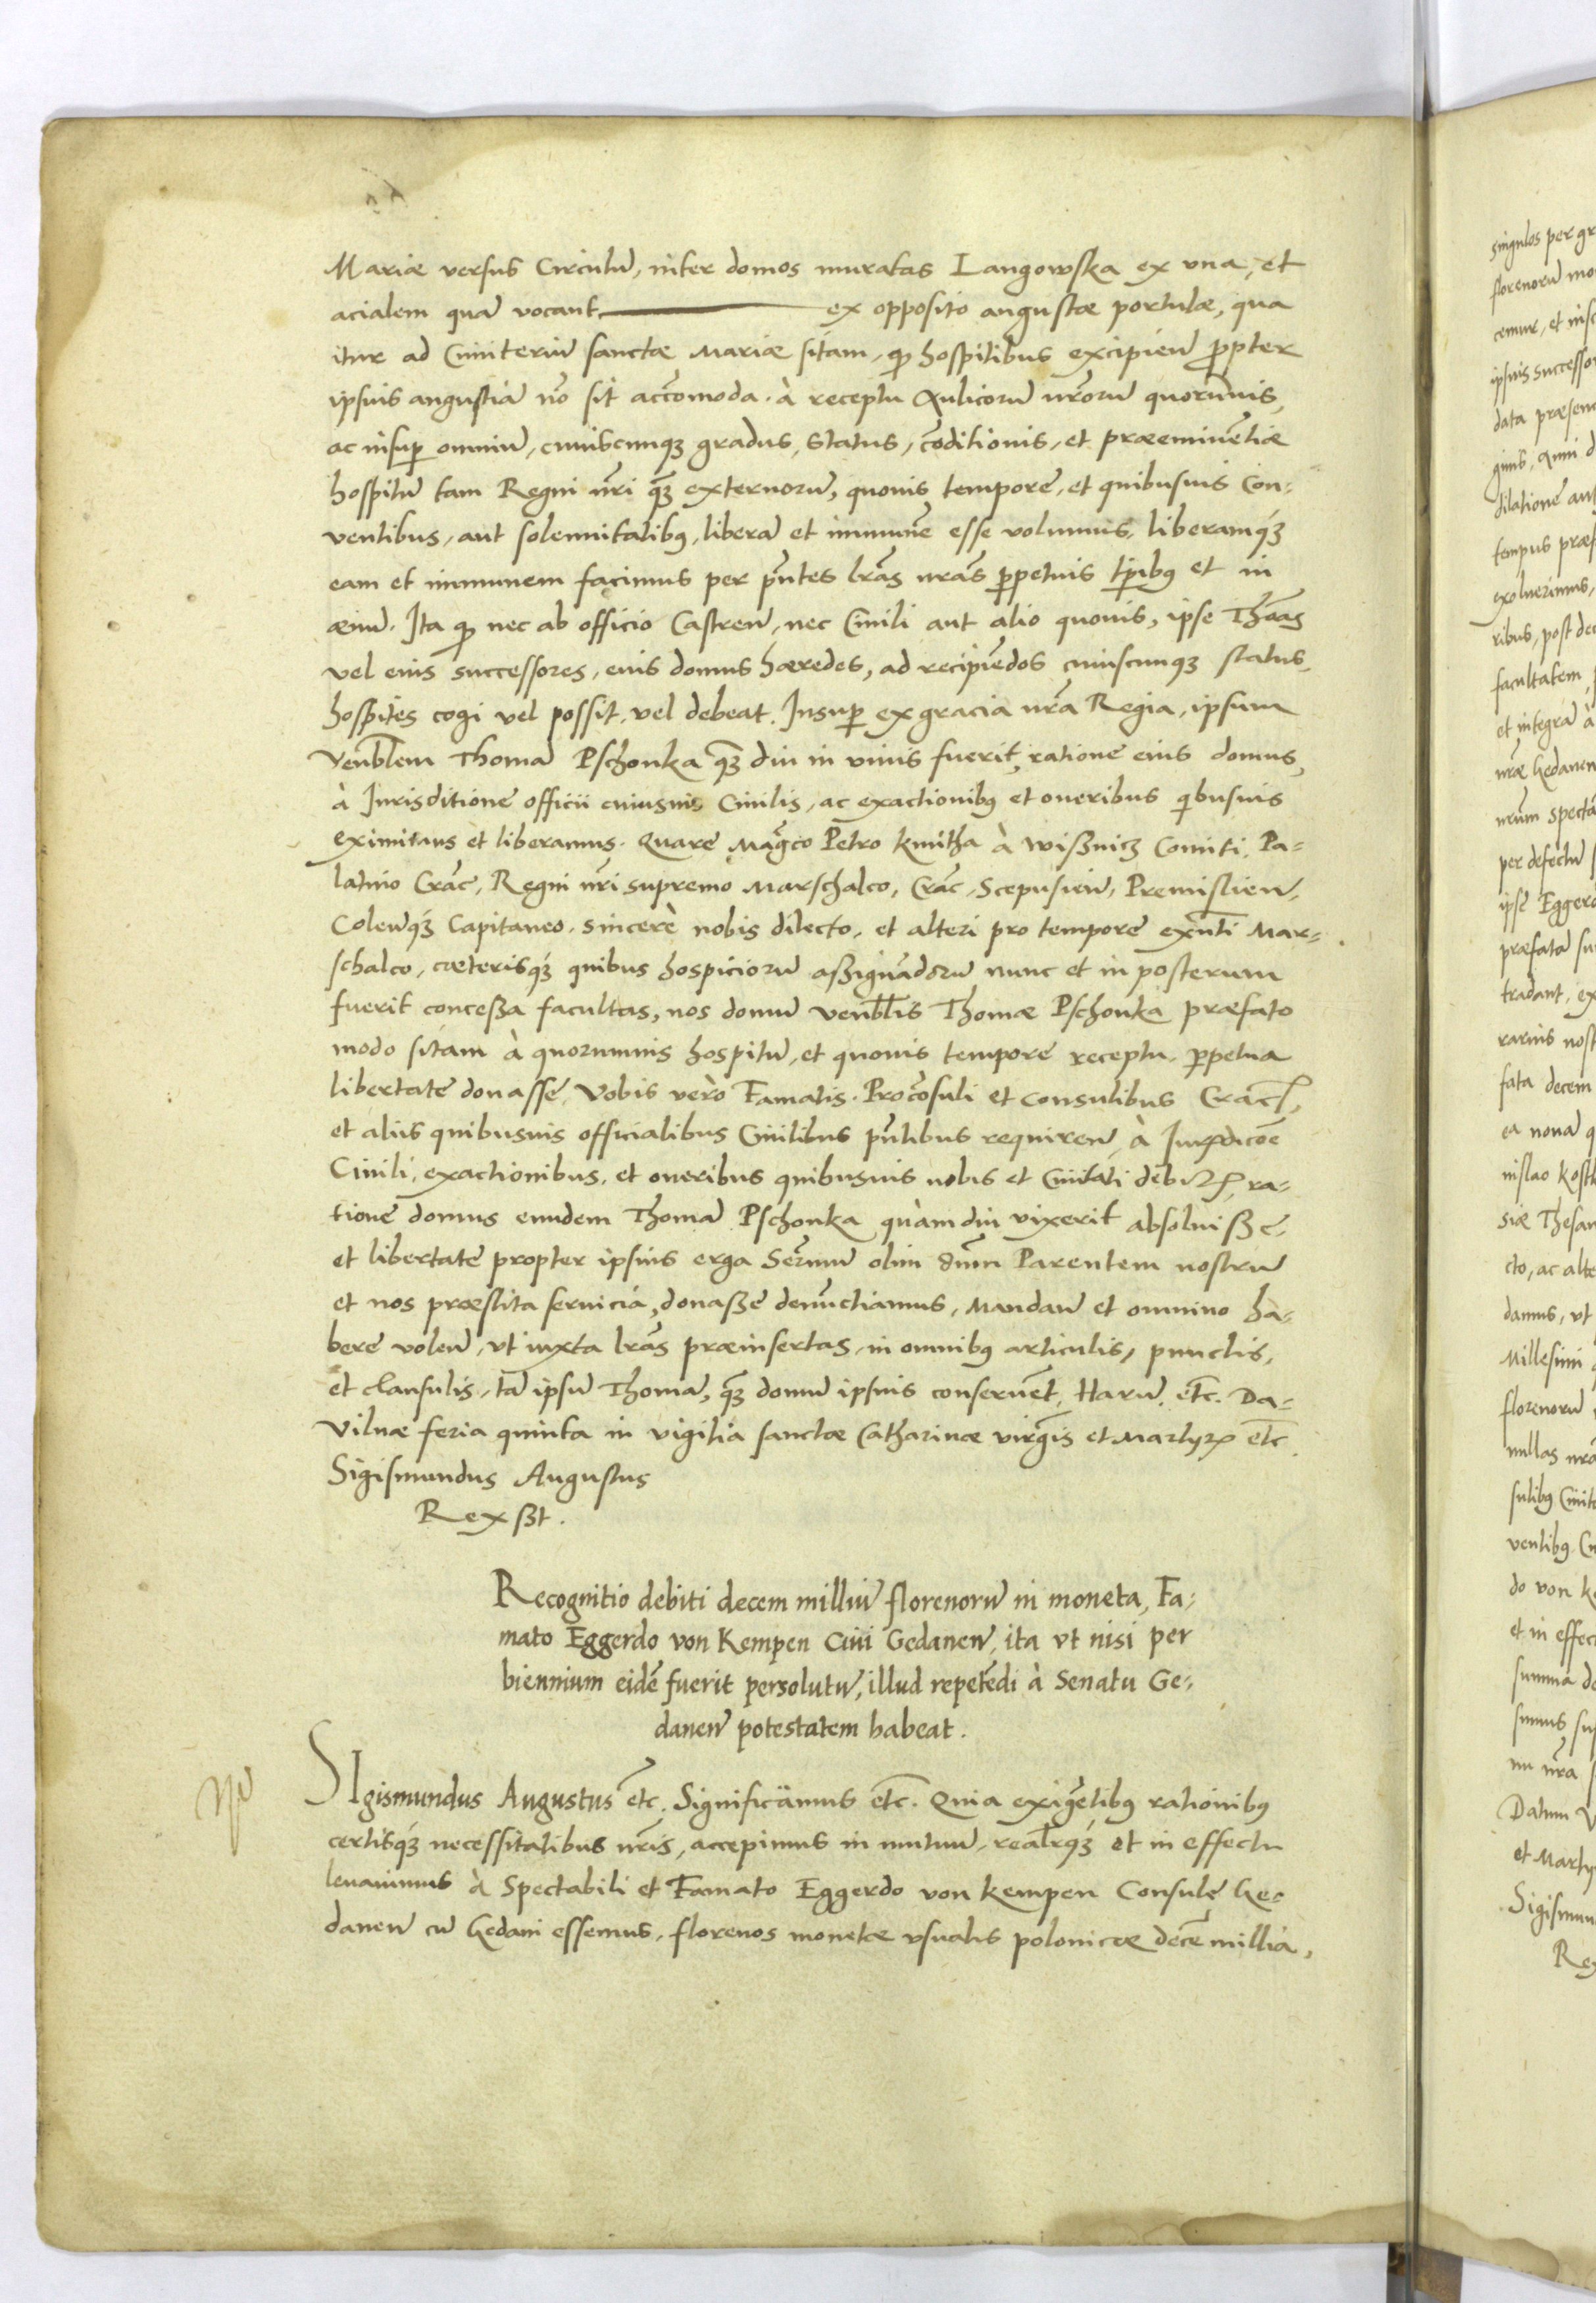 Mariæ versus Circulũ, inter domos muratas Langowska ex vna, et
acialem quã vocant ex opposito angustæ portulæ, qua
itur ad Cimiteriũ sanctæ Mariæ sitam, qȝ hospitibus excipieñ ꝓpter
ipsius angustiã nõ sit accõmoda. à receptu Aulicorũ nr̃orũ quorũuis,
ac insuꝑ omniũ, cuiuscunqȝ gradus, status, cõditionis, et præeminẽtiæ
hospitũ tam Regni nr̃i qȝ̃ externorũ, quouis tempore, et quibusuis Con-
uentibus, aut solennitatibꝰ, liberã et immunẽ esse volumus, liberamqȝ
eam et immunem facimus per pñtes lr̃as nr̃as ꝑpetuis tp̃ibꝰ et in
æuũ. Ita qȝ nec ab officio Castreñ, nec Ciuili aut alio quouis, ipse Thõas
vel eius successores, eius domus hæredes, ad recipiẽdos cuiuscunqȝ status
hospites cogi vel possit, vel debeat. Insuꝑ ex gracia nr̃a Regia, ipsum
Venblẽm Thomã Pschonka qȝ̃ diu in viuis fuerit, ratione eius domus,
à Iurisditione officii cuiusuis Ciuilis, ac exactionibꝰ et oneribus qibusuis
eximimus et liberamus. Quare Mag̃co Petro Kmitha à Wißnicz Comiti, Pa-
latino Crac̃, Regni nr̃i supremo Marschalco, Crac̃, Scepusieñ, Premislieñ,
Coleñqȝ Capitaneo, sincerè nobis dilecto, et alteri pro tempore exñti Mar-
schalco, cæterisqȝ quibus hospiciorũ aßignãdorũ nunc et in posterum
fuerit conceßa facultas, nos domũ venblĩs Thomæ Pschonka præfato
modo sitam à quorumuis hospitũ, et quouis tempore receptu, ꝑpetua
libertate donasse. Vobis verò Famatis Procõsuli et Consulibus Crac̃,
et aliis quibusuis officialibus Ciuilibus pñtibus requireñ, à Iurisdicõe
Ciuili, exactionibus, et oneribus quibusuis nobis et Ciuitati debitꝝ, ra-
tione domus eiusdem Thomã Pschonka quàm diu vixerit absoluiße,
et libertate propter ipsius erga Serm̃ũ olim dñm Parentem nostrũ
et nos præstita seruicia, donaße denũctiamus, Mandañ et omnino ha-
bere voleñ, vt iuxta lr̃as præinsertas, in omnibꝰ articulis, punctis,
et clausulis, tã ipsũ Thomã, qȝ̃ domũ ipsius conseruẽt. Harũ. etc̃. Da-
Vilnæ feria quinta in vigilia sanctæ Catharinæ virg̃is et Martyrꝭ etc̃
Sigismundus Augustus
Rex ßt.
Recognitio debiti decem milliũ florenorũ in moneta, Fa-
mato Eggerdo von Kempen Ciui Gedaneñ, ita vt nisi per
biennium eidẽ fuerit persolutũ, illud repetẽdi à Senatu Ge-
daneñ potestatem habeat.
SIgismundus Augustus etc̃. Significamus etc̃. Quia exigẽtibꝰ rationibꝰ
certisqȝ necessitatibus nr̃is, accepimus in mutuũ, realr̃qȝ et in effectu
leuauimus à Spectabili et Famato Eggerdo von Kempen Consule Ge-
daneñ cũ Gedani essemus, florenos monetæ vsualis polonicæ decẽ millia,
singulos per gr
florenorũ mo
cemur, et insc
ipsius successo
data præsen
ginis, Anni d
dilatione aut
tempus præf
exoluerimus,
ribus, post de
facultatem,
et integrã à
nr̃æ Gedanen
nr̃um specta
per defectũ
ipse Eggerd
præfatã su
tradant, ex
rariis nost
fata decem
ea nona q
nislao Kostk
siæ Thesau
cto, ac alte
damus, vt
Millesimi
florenorũ
nullas nr̃a
sulibꝰ Ciuit
uentibꝰ. Cu
do von Ke
et in effec
summa de
sumus su
nu nr̃a
Datum V
et Marty
Sigismun
Rex